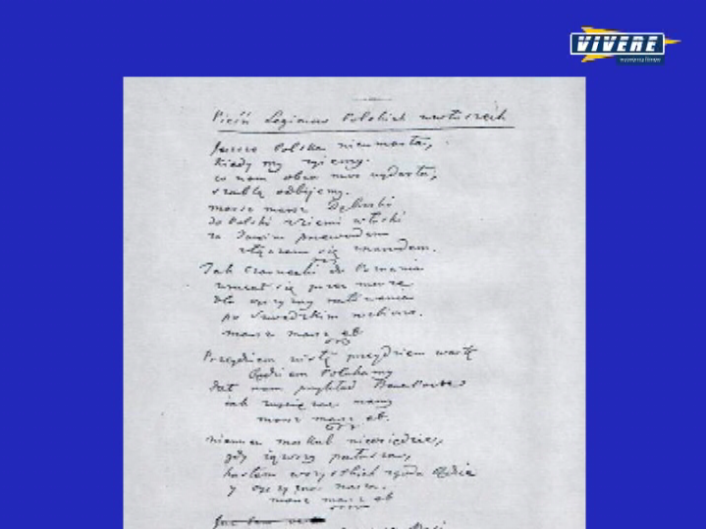 VIVERE
Pieśń Legionów Polskich we włoszech
Jeszcze Polska nieumarła,
kiedy my żyjemy.
co nam obca moc wydarła,
szablą odbijemy.
marsz marsz Dąbroski
do Polski z ziemi włoski
za Twoim przewodem
złączem się z narodem.
Jak Czarnecki do Poznania
wracał się przez morze
dla ojczyzny ratowania
po Szwedzkim rozbiorze.
marsz marsz et
Przejdziem wisłę przejdziem wartę
Będziem Polakamy
Dał nam przykład Bonaparte
jak zwyciężać mamy
marsz marsz et.
niemiec moskal nieosiędzie,
gdy jąwszy pałasza,
hasłem wszystkich zgoda będzie
y ojczyzna nasza.
marsz marsz et